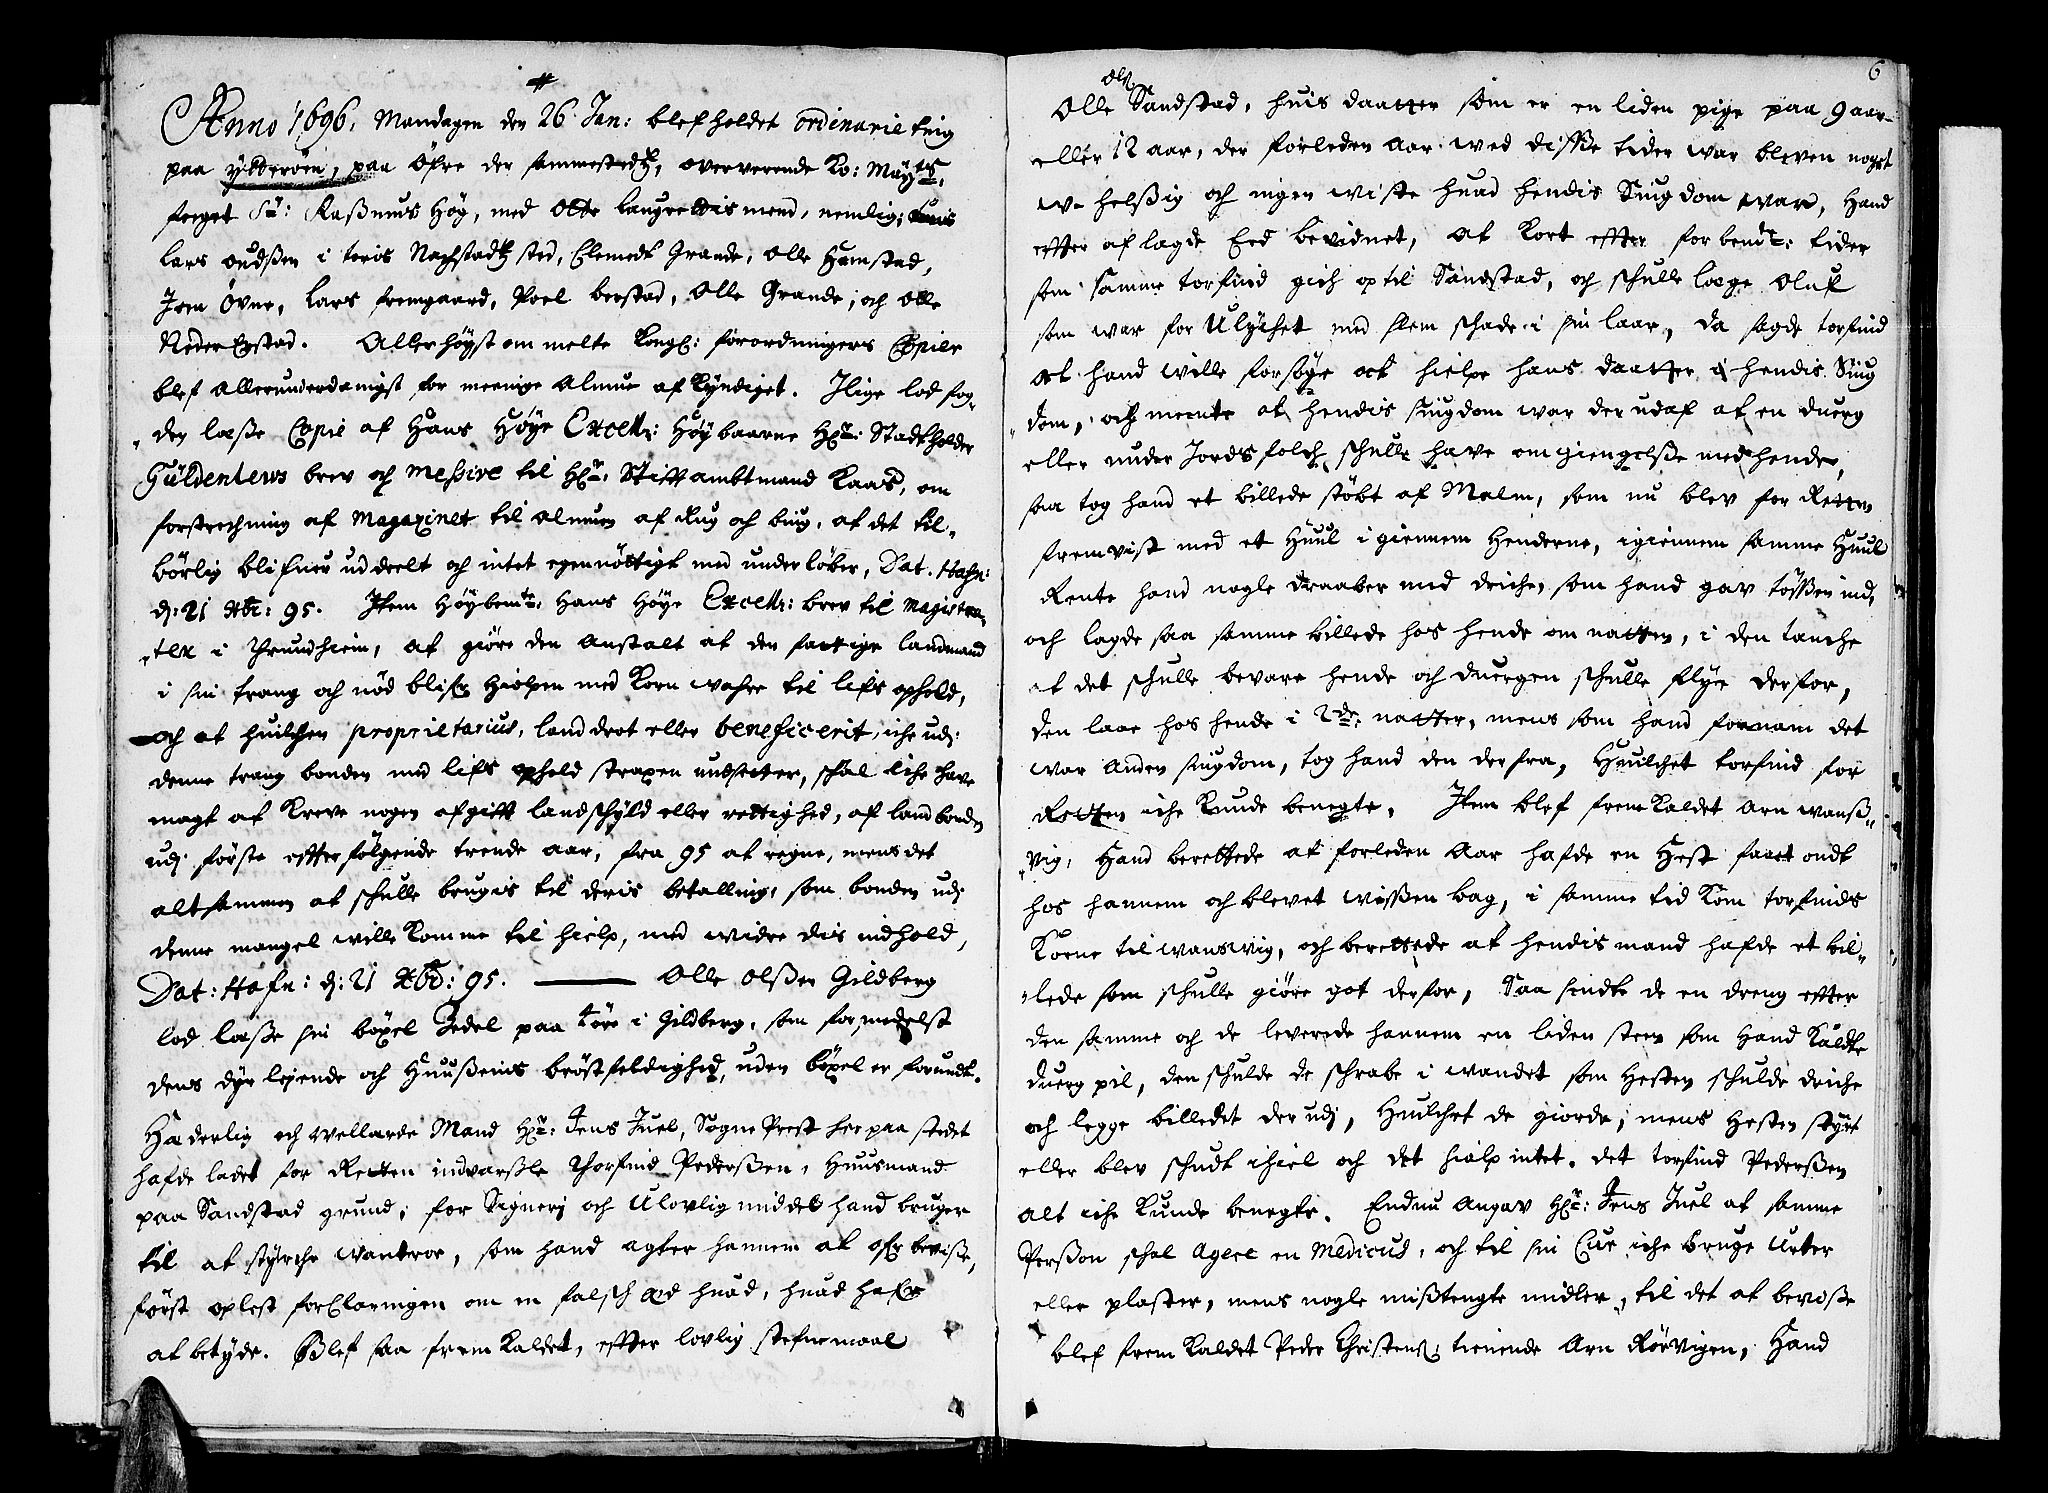 Anno 1696, Mandagen den 26 Jan: blef holdet ordinarie ting
paa ytterøen, paa Öfre der sammestedtz, oververende Ko: Mayts
foeget Sr: Rasmus Høg, med otte laugrettismend, nemlig:
Lars oudsßen i teris Nachstadtz sted, Clemedt Grande, Olle Hemstad,
Joen Övne, Lars fremgaard, Poel berstad, Olle Grande, och Olle
Neder Egstad. Allerhöyst om melte Kongl: forordningers Copier
blef allerunderdanigst for meenige Almue af Kyndiget. Jlige lod fog„
„den læsse Copie af Hans Höye Excell: Höybaarne Hr: Stadtholder
Güldenlews brev och Messive til Hr: Stiftambtmand Kaas, om
forstrechning af Magazinet til almuen af Rug och biug, at det til„
börlig blifuer uddeelt och intet egennöttigt med underlöber, Dat. Hafn:
d: 21 Xbr: 95. Jtem Höybemte: Hans Höye Excell: brev til Magistra„
„ten i Thrundhiem, at giöre den Anstalt at den fattige landmand
i sin trang och nöd blifr Hiolpen med Korn wahre til lifs ophold,
och at huilchen proprietarius, landdrot eller beneficerit, iche udj
denne trang bonden med lifs ophold straxen undsetter, schal iche have
magt at Kreve nogen afgift landschyld eller rettighed, af landbonden
udj förste efterfölgende trende aar, fra 95 at regne, mens det
altsammen at schulle brugis til deris betalling, som bonden udj
denne mangel wille Komme til hielp, med widre dis indhold,
Dat: Hafn: d: 21 Xbr: 95. Olle Olsßen Gildberg
lod læsse sin böxel Sedel paa Töre i Gildberg, som formedelst
dens dyr lejende och Huussenis bröstfeldighed, uden böxel er forundt.
Hæderlig och wellærde Mand Hr: Jens Juel, Sogne Prest her paa stedet
hafde ladet for Retten indvarsßle Thorfind Pedersßen, Huusmand
paa Sandstad grund, for Signerj och Ulovlig middel hand bruger
til at styrche wantroe, som hand agter hannem at ofr bevisse,
först oplest forClaringen om en falsch æd huad, huad hafr
at betyde. Blef saa frem Kaldet, efter lovlig stefnemaal
6
Ols
Olle Sandstad, huis daatter som er en liden pige paa 9 aar
eller 12 aar, der forleden aar wed disße tider war bleven noget
w- helsßig och ingen wiste huad hendis Siugdom war, Hand
efter aflagde Eed bevidnet, at Kort efter forbendte: tider
som samme torfind gich op til Sandstad, och schulle læge Oluf
som war for Ulychet med slem schade i sin laar, da sagde torfind
at hand wille forsöge at hielpe hans daatter i hendis Siug
„dom, och meente at hendis siugdom war der udaf at en duerg
eller under Jords folch schulle have omgiengelsße med hende,
saa tog hand et billede stöbt af Malm, som nu blev for Retten
fremvist med et Huul igiennem Henderne, igiennem samme Huul
Rente hand nogle draaber med driche, som hand gav tössen ind,
och lagde saa samme billede hos hende om natten, i den tanche
at det schulle bevare hende och duergen schulle flye derfor,
den laae hos hende i 2de: natter, mens som hand fornam det
war anden siugdom, tog hand den derfra, Huulchet torfind for
Retten iche Kunde benegte. Jtem blef frem Kaldet Arn wans„
„vig, Hand berettede at forleden Aar hafde en Hest faaet ondt
hos hannem och blevet wissen bag, i samme tid Kom torfinds
Koene til wanswig, och berettede at hendis mand hafde et bil„
„lede som schulle giöre got derfor, Saa sindte de en dreng efter
den samme och de leverede hannem en liden steen som Hand Kaldte
duergpil, den schulde de schrabe i wandet som Hesten schulde driche
och legge billedet der udj, Huulchet de giorde, mens Hesten styrt
eller blev schudt ihiel och det hialp intet. det torfind Pedersßen
alt iche Kunde benegte. Endnu Angav Hr: Jens Juel at samme
Persßon schal Agere en Medicus, och til sin Cur iche bruge Urter
eller plaster, mens nogle mißtengte midler, til det at bevisse
blef frem Kaldet Peder Christens: tienende Arn Rörvigen, Hand